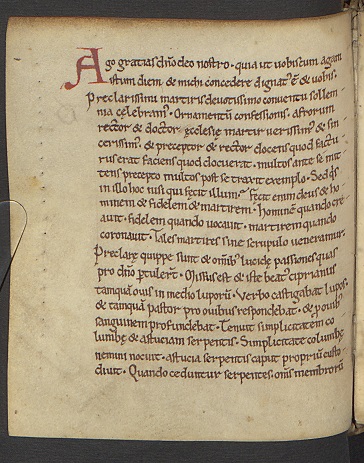 Ago gratias dño deo nostro · quia ut uobiscum agam
istum diem & michi concedere dignat' ē & uobis ·
Preclarissimi martiris deuotissimo conuentu sollem
nia celebram' · Ornamentū confessionis · afrorum
rector & doctor · ęcclesię martir uerissim' & sin
cerissim' · & preceptor & rector docens quod factu
rus erat · faciens quod docuerat · multos ante se mit
tens precepto · multos post se traxit exemplo · Sed qs̄
in illo hoc nisi qui fecit illum · Fecit enim deus & ho
minem & fidelem & martirem · hominē quando cre
auit · fidelem quando uocauit · martirem quando
coronauit · Tales martires sine scrupulo ueneramur ·
Preclarę quippe sunt & omib; lucidę passiones quas
pro dño ptuler̄t · Missus est & iste beat' ciprianus
tamquā ouis in medio luporū · Verbo castigabat lupos ·
& tamquā pastor pro ouibus respondebat · & p ouib;
sanguinem profundebat · Tenuit simplicitatem co
lumbę & astuciam serpentis · Simplicitate columbę
nemini nocuit · astucia serpentis caput propriū custo
diuit · Quando ceduntur serpentes · oms̄ membrorū